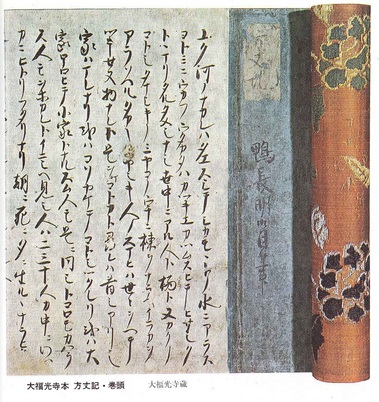 方丈記
鴨長明自筆
ユク河ノナカレハタエスシテシカモヽトノ水ニアラス
ヨトミニウカフウタカタハカツキエカツムスヒテヒサシク
トヽマリタルタメシナシ世中ニアル人ト栖ト又カクノ
コトシタマシキノミヤコノウチニ棟ヲナラヘイラカヲ
アラソヘルタカキイヤシキ人ノスマヒハ世々ヲヘテ
ツキセヌ物ナレト是ヲマコトカト尋レハ昔シアリシ
家ハマレナリ或ハコソヤケテコトシツクレリ或ハ大
家ホロヒテ小家トナルスム人モ是ニ同シトコロモカハラ
ス人モヲホカレトイニシヘ見シ人ハ二三十人カ中ニワツ
カニヒトリフタリナリ朝ニ死ニ夕ニ生ルヽナラヒ
大福光寺本 方丈記・巻頭 大福光寺蔵